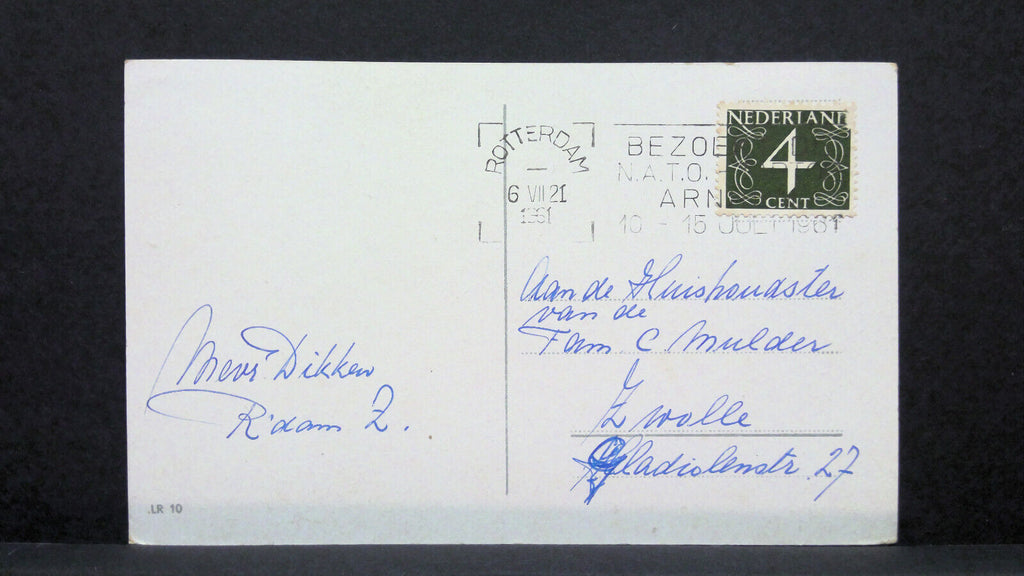 ROTTERDAM
6 VII 21
1961
BEZOE
N.A.T.O.
ARN
10 - 15 JULI 1961
NEDERLAND
4
CENT
Aan de Huishoudster
van de
Fam C Mulder
Zwolle
Gladiolenstr. 27
Mevr Dikken
R'dam Z.
LR 10